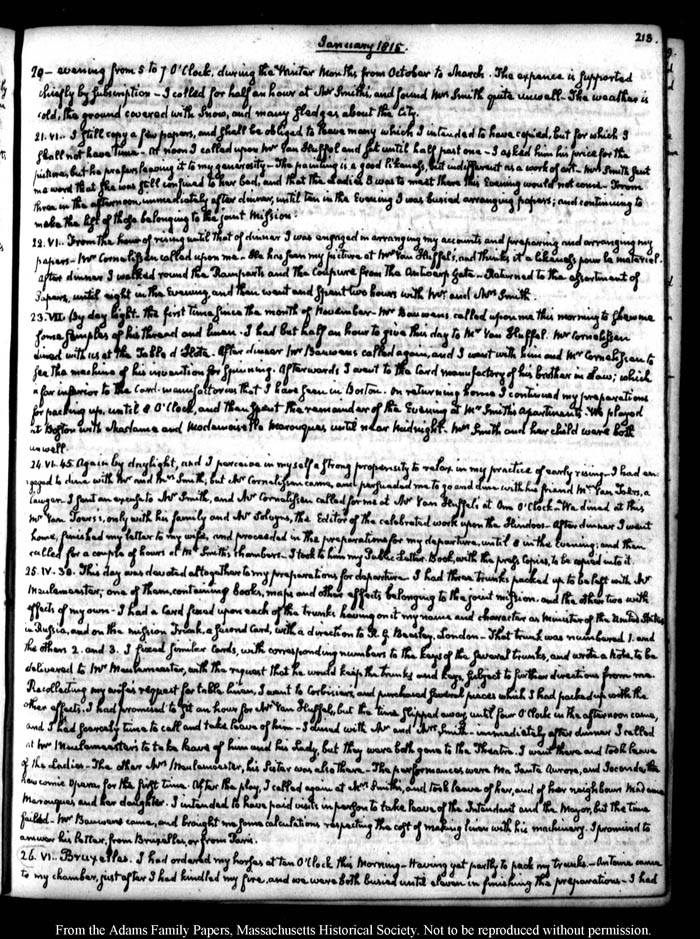 January 1815.
213.
20 — evening from 5 to 7 O'Clock, during the Winter Months from October to March. The expence is supported
chiefly by Subscription — I called for half an hour at Mr Smith's, and found Mrs Smith quite unwell. The weather is
cold, the ground covered with Snow, and many sledges about the City.
21. VI. I still copy a few papers, and shall be obliged to leave many which I intended to have copied, but for which I
shall not have time. At noon I called upon Mr Van Huffel and sat until half past one — I asked him his price for the
picture, but he prefers leaving it to my generosity — The painting is a good likeness, but indifferent as a work of art. Mrs Smith sent
me word that she was still confined to her bed, and that the Ladies I was to meet there this Evening would not come. From
three in the afternoon, immediately after dinner, until ten in the Evening I was busied arranging papers; and continuing to
make the list of those belonging to the joint Mission.
22. VI. From the hour of rising until that of dinner I was engaged in arranging my accounts and preparing and arranging my
papers — Mr Cornelissen called upon me. He has seen my picture at Mr Van Huffel's, and thinks it a likeness pour le materiel.
After dinner I walked round the Ramparts and the Coupure from the Antwerp Gate — Returned to the assortment of
Papers, until eight in the Evening and then went and spent two hours with Mr and Mrs Smith.
23. VII. By day light. the first time since the month of November — Mr Bauwens called upon me this morning to shew me
some samples of his thread and linen. I had but half an hour to give this day to Mr Van Huffel. Mr Cornelissen
dined with us at the Table d'Hote. After dinner Mr Bauwens called again, and I went with him and Mr Cornelissen to
see the machine of his invention for spinning. Afterwards I went to the Card manufactory of his brother in law; which
is far inferior to the Card-manufactories that I have seen in Boston. On returning home I continued my preparations
for packing up, until 8 O'Clock, and then spent the remainder of the Evening at Mr Smith's Apartments. We played
at Boston with Madame and Mademoiselle Marouques until near midnight. Mrs Smith and her child were both
unwell.
24. VI. 45. Again by daylight, and I perceive in myself a strong propensity to relax in my practice of early rising — I had en-
gaged to dine with Mr and Mrs Smith, but Mr Cornelissen came, and persuaded me to go and dine with his friend Mr Van Toers, a
lawyer. I sent an excuse to Mr Smith, and Mr Cornelissen called for me at Mr Van Huffel's at One O'Clock — We dined at this
Mr Van Toers's, only with his family and Mr Solvyns, the Editor of the celebrated work upon the Hindoos. After dinner I went
home, finished my letter to my wife, and proceeded in the preparations for my departure, until 8 in the evening; and then
called for a couple of hours at Mr Smith's chambers — I took to him my Public Letter Book, with the press Copies, to be copied into it.
25. IV. 30. This day was devoted altogether to my preparations for departure. I had three trunks packed up to be left with Mr
Meulemeester; one of them, containing books, maps and other effects belonging to the joint mission. and the other two with
effects of my own — I had a Card fixed upon each of the trunks having on it my name and character as Minister of the United States
in Russia, and on the mission Trunk, a second Card, with a direction to R. G. Beasley, London — That trunk was numbered 1. and
the others 2. and 3. I fixed similar Cards, with corresponding numbers to the keys of the several trunks, and wrote a Note, to be
delivered to Mr Meulemeester, with the request that he would keep the trunks and keys subject to further directions from me.
Recollecting my wife's request for table linen, I went to Corbisier's, and purchased several pieces which I had packed up with the
other effects. I had promised to sit an hour for Mr Van Huffel, but the time slipped away until four O'Clock in the afternoon came,
and I had scarcely time to call and take leave of him — I dined with Mr and Mrs Smith — immediately after dinner I called
at Mr Meulemeester's to take leave of him and his Lady, but they were both gone to the Theatre. I went there and took leave
of the Ladies — The other Mrs Meulemeester, his Sister was also there — The performances were Ma Tante Aurore, and Joconde, the
new comic Opera, for the first time. After the play, I called again at Mr Smith's, and took leave of her, and of her neighbours Madame
Marouques, and her daughter. I intended to have paid visits in person to take leave of the Intendant and the Mayor, but the time
failed. Mr Bauwens came, and brought me some calculations respecting the cost of making linen with his machinery. I promised to
answer his letter, from Bruxelles, or from Paris.
26. VI. Bruxelles. I had ordered my horses at ten O'Clock this Morning — Having yet partly to pack my trunks — Antoine came
to my chamber, just after I had kindled my fire, and we were both busied until eleven in finishing the preparations — I had
From the Adams Family Papers, Massachusetts Historical Society. Not to be reproduced without permission.